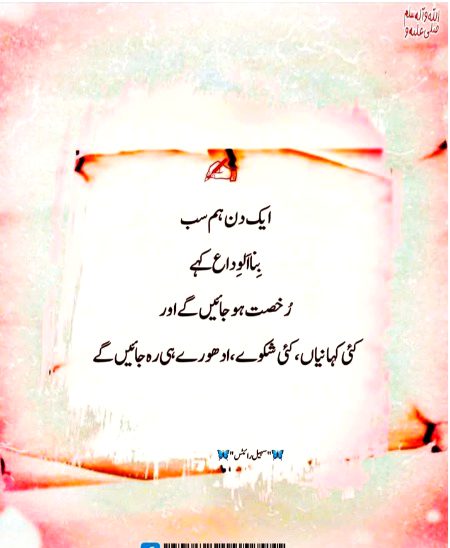 صلی علیہ و
اللہ وآلہ سلم
ایک دن ہم سب
بِنا اَلوِداع کہے
رُخصت ہو جائیں گے اور
کئی کہانیاں، کئی شکوے، ادھورے ہی رہ جائیں گے
"سہیل رائٹس"